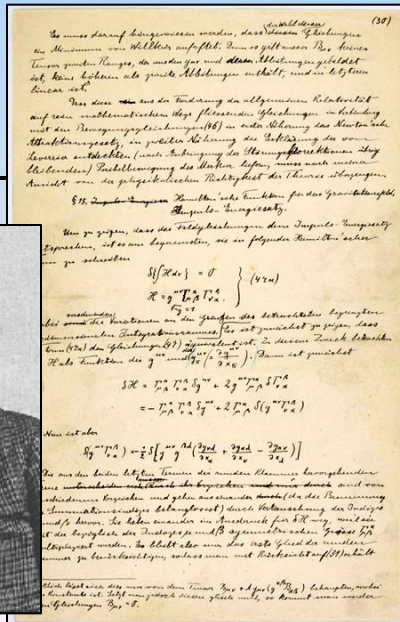 (30)
Es muss darauf hingewiesen werden, dass der Wahl dieser Gleichungen
ein Minimum von Willkür anhaftet. Denn es gibt ausser Bμν keinen
Tensor zweiten Ranges, der aus den gμν und deren Ableitungen gebildet
ist, keine höheren als zweite Ableitungen enthält, und in letzteren
linear ist.
Dass diese aus der Forderung der allgemeinen Relativität
auf rein mathematischem Wege fliessenden Gleichungen in Verbindung
mit den Bewegungsgleichungen (46) in erster Näherung das Newton'sche
Attraktionsgesetz, in zweiter Näherung die Erklärung der von
Leverrier entdeckten (nach Anbringung der Störungskorrektionen übrig
bleibenden) Perihelbewegung des Merkur liefern, muss nach meiner
Ansicht von der physikalischen Richtigkeit der Theorie überzeugen.
§ 15. Hamilton'sche Funktion für das Gravitationsfeld,
Impuls-Energiesatz.
Um zu zeigen, dass die Feldgleichungen dem Impuls-Energiesatz
entsprechen, ist es am bequemsten, sie in folgender Hamilton'scher
zu schreiben
δ{∫H dτ} = 0
H = g^μν Γ^α_μβ Γ^β_να } (47a)
√−g = 1
die Variationen an den Grenzen des betrachteten begrenzten
Integrationsraumes. Es ist zunächst zu zeigen, dass
(47a) den Gleichungen (47) äquivalent ist. Zu diesem Zweck betrachten
H als Funktion der g^μν und g^μν_σ (= ∂g^μν/∂x_σ). Dann ist zunächst
δH = Γ^α_μβ Γ^β_να δg^μν + 2g^μν Γ^α_μβ δΓ^β_να
= − Γ^α_μβ Γ^β_να δg^μν + 2Γ^α_μβ δ(g^μν Γ^β_να)
Nun ist aber
δ(g^μν Γ^β_να) = −½ δ[g^μν g^βλ(∂g_νλ/∂x_α + ∂g_αλ/∂x_ν − ∂g_αν/∂x_λ)]
Die aus den beiden letzten Termen der runden Klammer hervorgehenden
sind von
Vorzeichen und gehen auseinander (da die Benennung
Summationsindizes belanglos ist) durch Vertauschung der Indizes
und β hervor. Sie heben einander im Ausdruck für δH weg, weil sie
mit der bezüglich der Indizes μ und β symmetrischen Grösse Γ^α_μβ
multipliziert werden. Es bleibt also nur das erste Glied der runden
Klammer zu berücksichtigen, sodass man mit Rücksicht auf (31) erhält